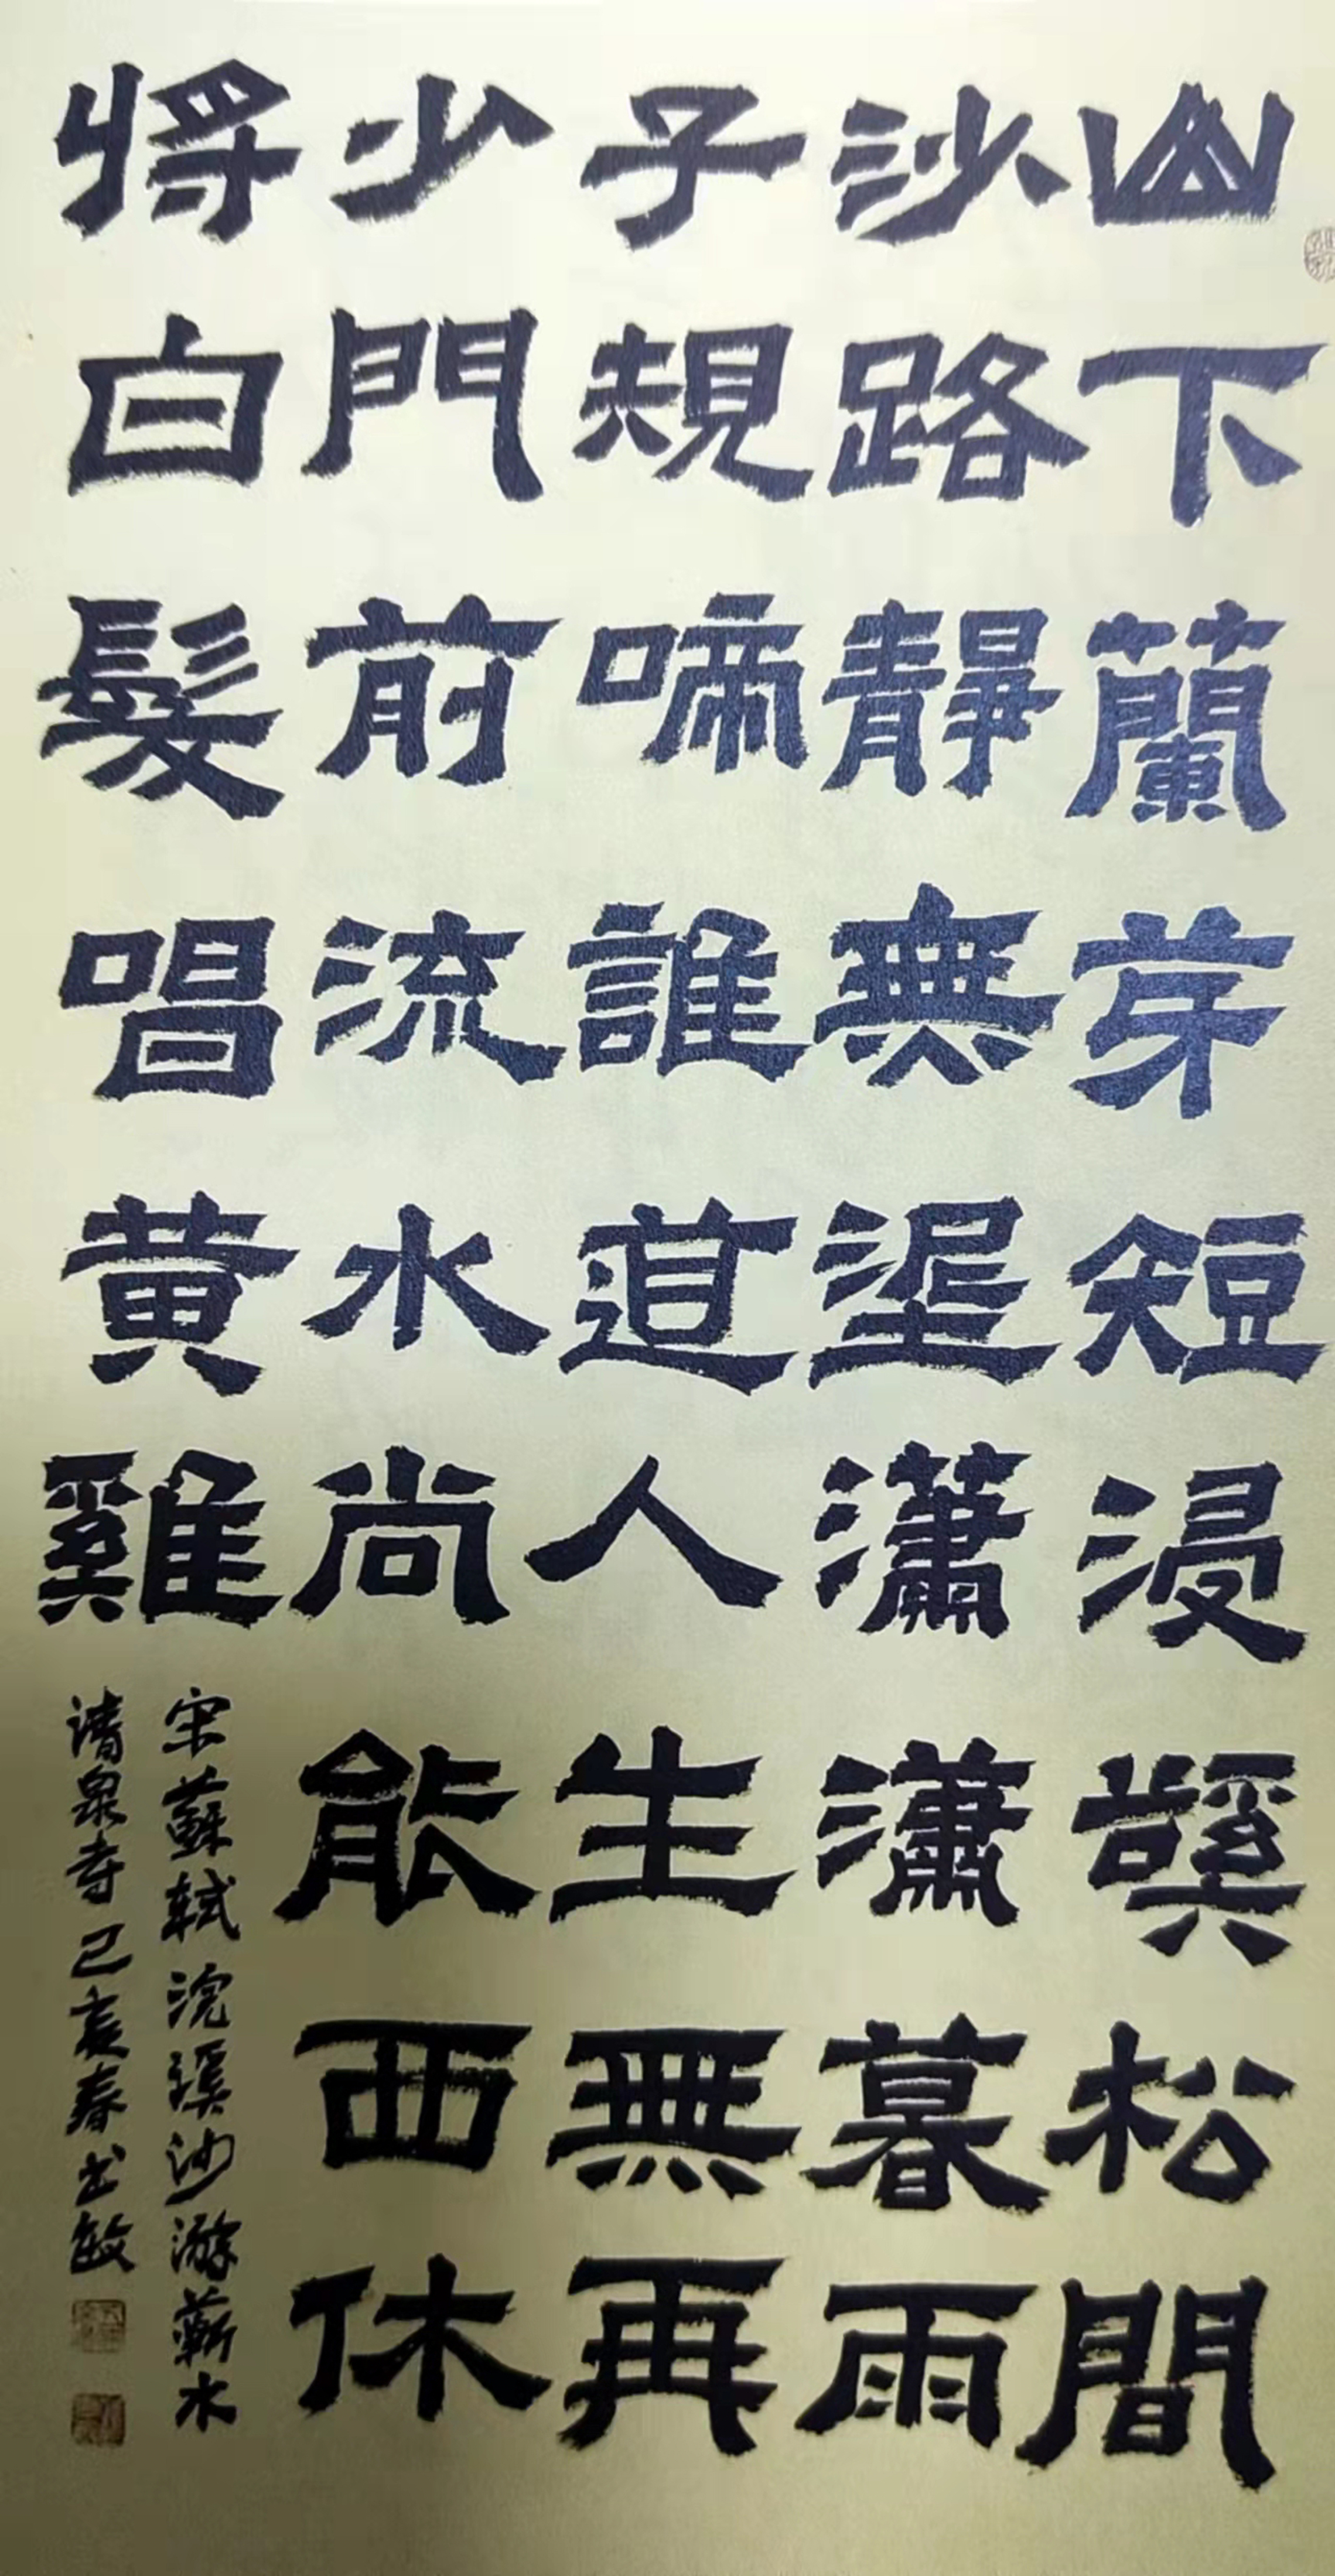 山下蘭芽短浸谿松間
沙路靜無埿瀟瀟暮雨
子規啼誰道人生無再
少門前流水尚能西休
將白髮唱黃雞
宋蘇軾浣溪沙游蘄水
清泉寺己亥春书敏